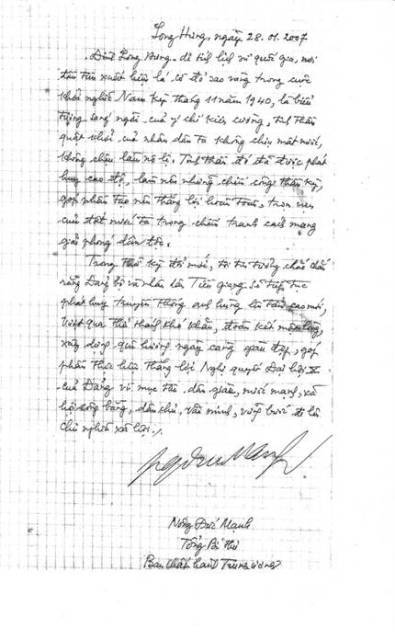 Long Hưng, ngày 28.01.2007
Đình Long Hưng. di tích lịch sử quốc gia, nơi
đầu tiên xuất hiện lá cờ đỏ sao vàng trong cuộc
khởi nghĩa Nam Kỳ tháng 11 năm 1940, là biểu
tượng sáng ngời của ý chí kiên cường, tinh thần
quật khởi của nhân dân ta không chịu mất nước,
không chịu làm nô lệ. Tinh thần đó đã được phát
huy cao độ, làm nên những chiến công thần kỳ,
góp phần tạo nên thắng lợi hoàn toàn, trọn vẹn
của đất nước ta trong chiến tranh cách mạng
giải phóng dân tộc.
Trong thời kỳ đổi mới, tôi tin tưởng chắc chắn
rằng Đảng bộ và nhân dân Tiền Giang sẽ tiếp tục
phát huy truyền thống anh hùng lên tầm cao mới,
vượt qua thử thách khó khăn, đoàn kết một lòng,
xây dựng quê hương ngày càng giàu đẹp, góp
phần thực hiện thắng lợi Nghị quyết Đại hội X
của Đảng vì mục tiêu dân giàu, nước mạnh, xã
hội công bằng, dân chủ, văn minh, vững bước đi lên
chủ nghĩa xã hội./.
Nông Đức Mạnh
Tổng Bí thư
Ban Chấp hành Trung ương